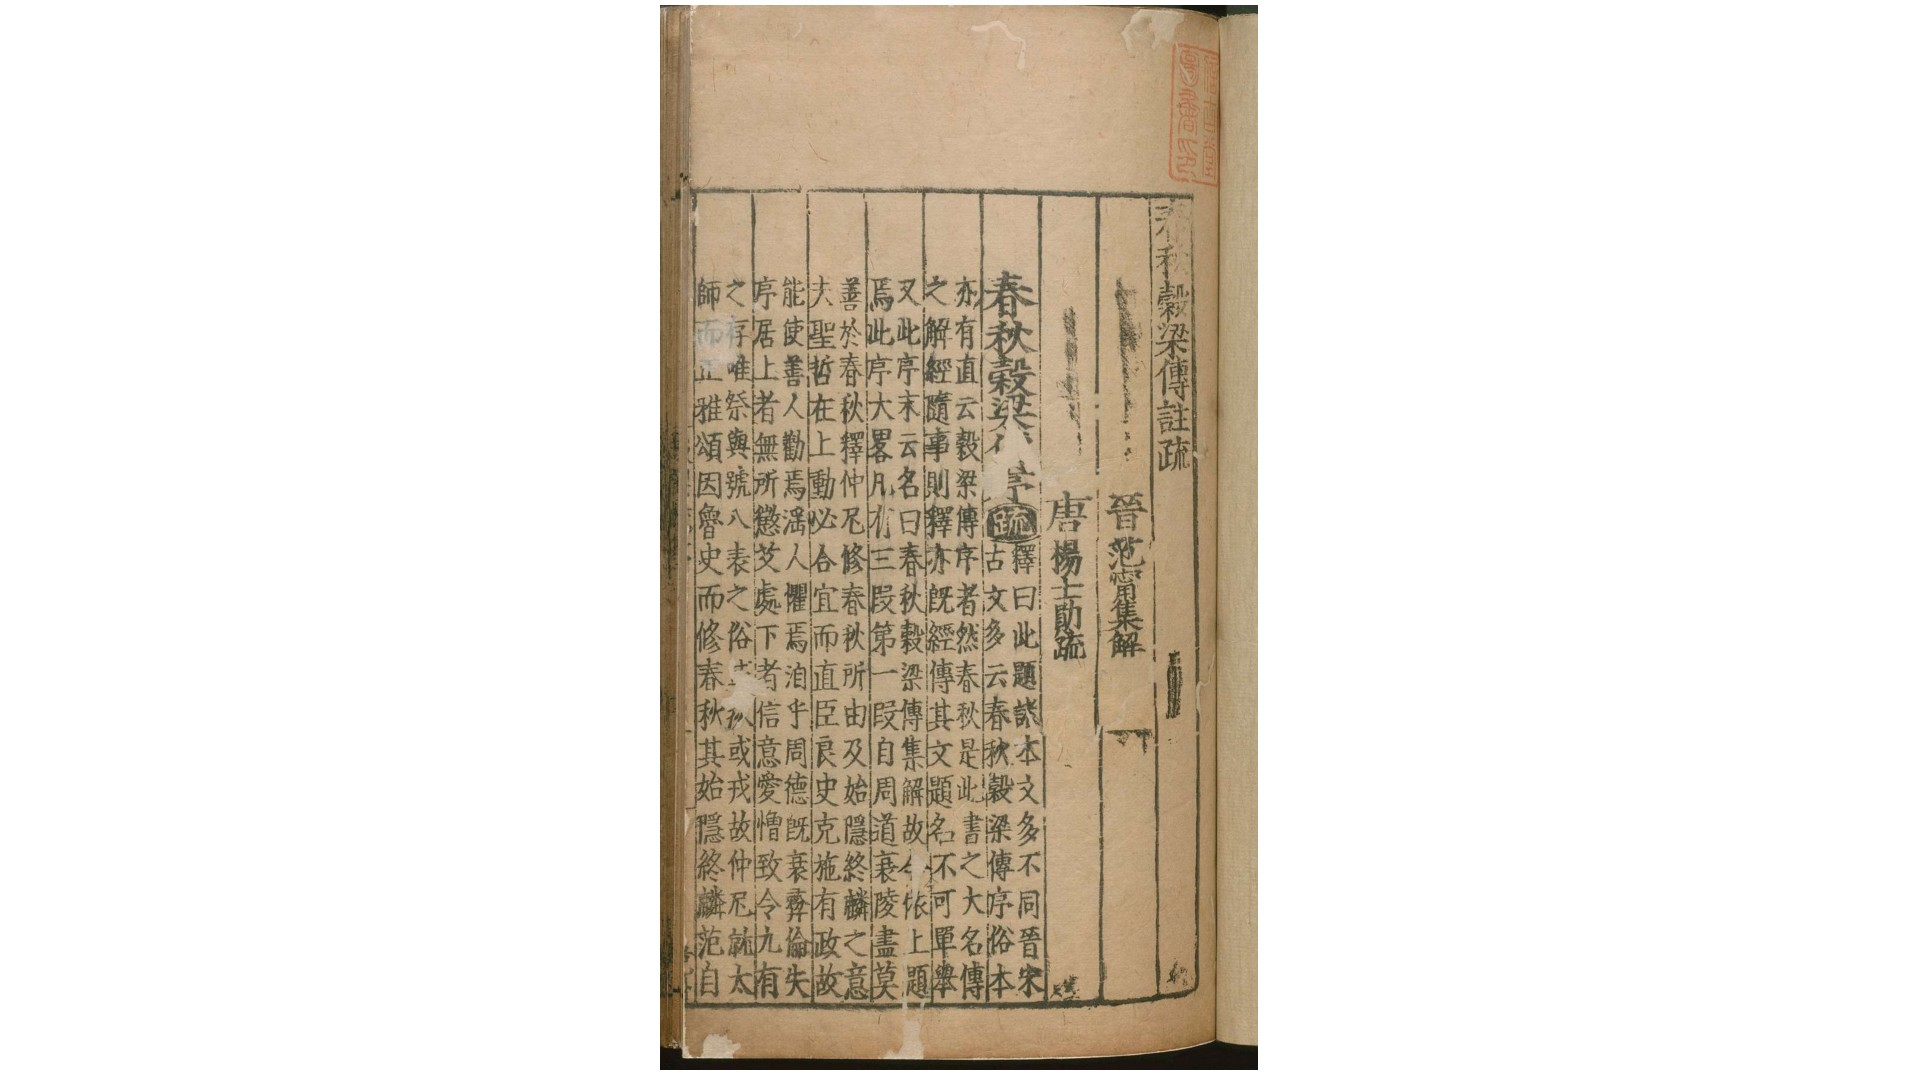 春秋穀梁傳註疏
晉范甯集解
唐楊士勛疏
春秋穀梁 序疏
釋曰此題諸本文多不同晉宋
古文多云春秋穀梁傳序俗本
亦有直云穀梁傳序者然春秋是此書之大名傳
之解經隨事則釋亦既經傳其文題名不可單舉
又此序末云名曰春秋穀梁傳集解故今依上題
焉此序大畧凡有三段第一段自周道衰陵盡莫
善於春秋釋仲尼修春秋所由及始隱終麟之意
夫聖哲在上動必合宜而直臣良史克施有政故
能使善人勸焉滛人懼焉洎乎周德既衰彝倫失
序居上者無所懲艾處下者信意愛憎致令九有
之存唯祭與號八表之俗 或狄或戎故仲尼就太
師而正雅頌因魯史而修春秋其始隱終麟范自